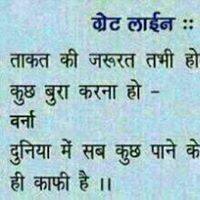 ग्रेट लाईन ::
ताकत की जरूरत तभी हो
कुछ बुरा करना हो -
वर्ना
दुनिया में सब कुछ पाने के
ही काफी है ।।